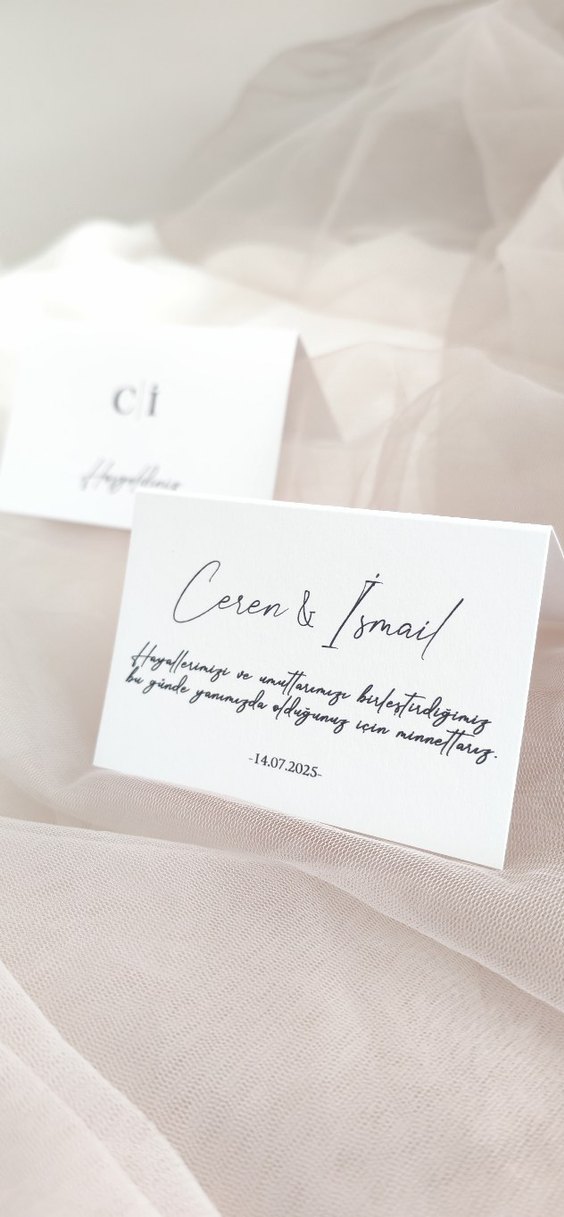 C|İ
Hoşgeldiniz
Ceren & İsmail
Hayallerimizi ve umutlarımızı birleştirdiğimiz
bu günde yanımızda olduğunuz için minnettarız.
-14.07.2025-